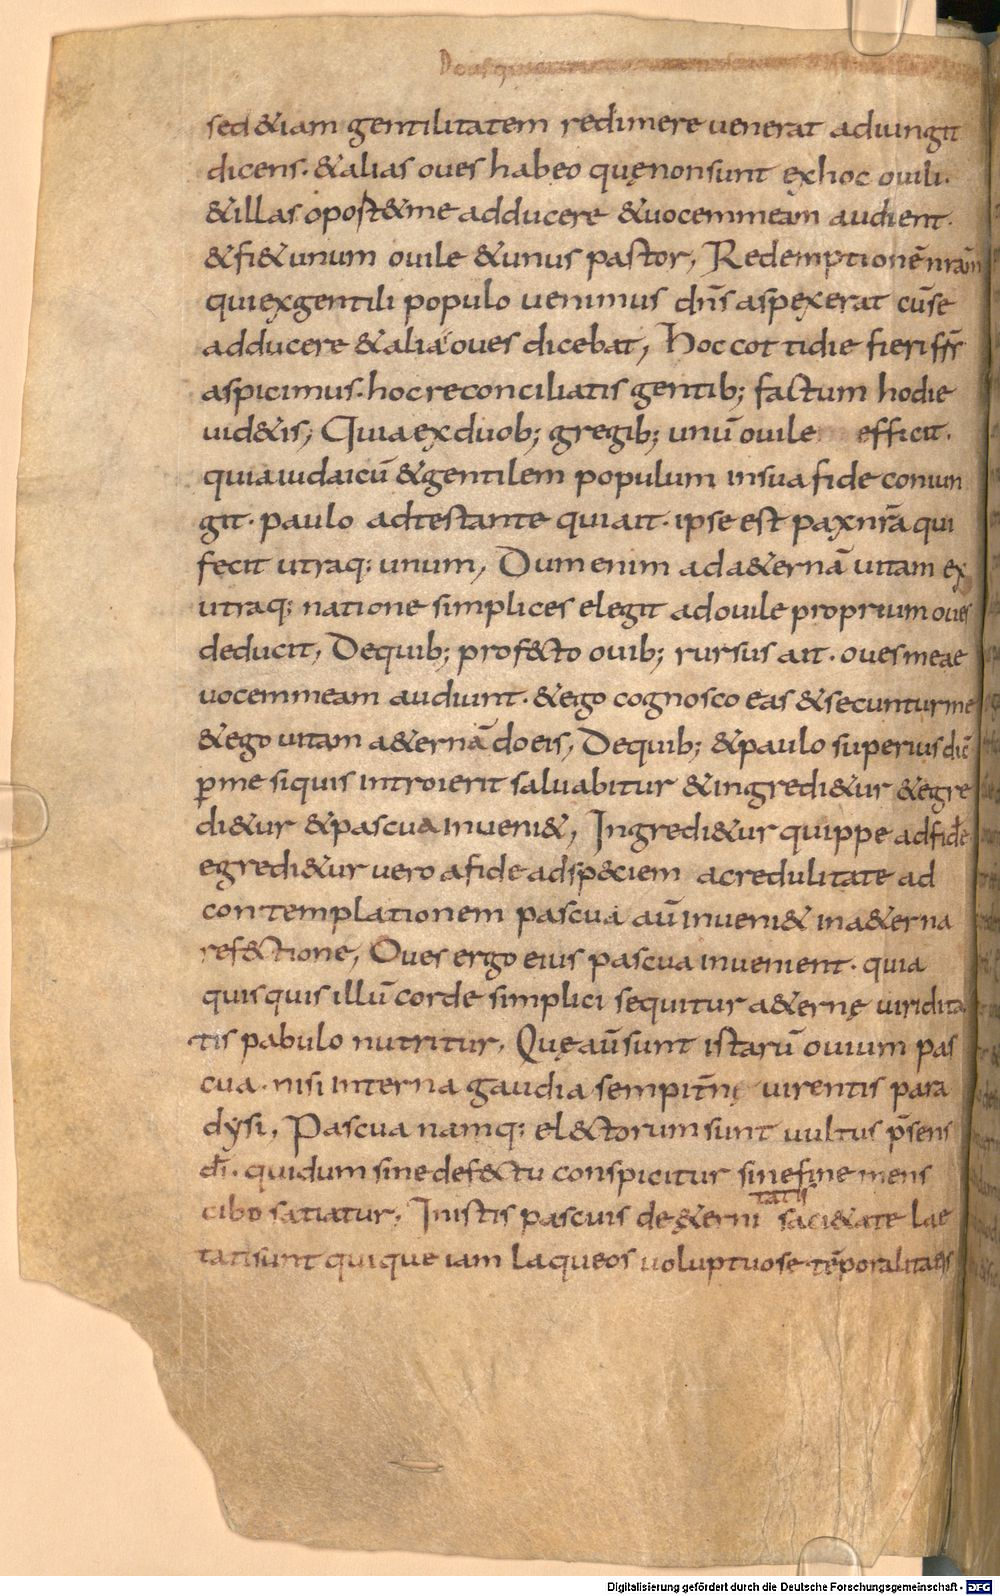 Deus qui
sed &iam gentilitatem redimere uenerat adiungit
dicens. &alias oues habeo quę non sunt exhoc ouili.
&illas oport&me adducere &uocem meam audient.
&fi& unum ouile &unus pastor, Redemptionē nr̄am
qui exgentili populo uenimus dn̄s aspexerat cū se
adducere &alias oues dicebat, Hoc cottidie fieri frs̄
aspicimus. hoc reconciliatis gentib; factum hodie
uid&is; Quia ex duob; gregib; unū ouile efficit.
quia iudaicū &gentilem populum insua fide coniun
git. paulo adtestante qui ait. ipse est pax nr̄a qui
fecit utraq; unum, Dum enim ad a&ernā uitam ex
utraq; natione simplices elegit ad ouile proprium oues
deducit, Dequib; prof&cto ouib; rursus ait. oues meae
uocem meam audiunt. &ego cognosco eas &secuntur me
&ego uitam a&ernā do eis, Dequib; &paulo superius dic̄
ꝑ me siquis introierit saluabitur &ingredi&ur &egre
di&ur &pascua inueni&, Ingredi&ur quippe ad fidē
egredi&ur uero afide adsp&ciem acredulitate ad
contemplationem pascua aū inueni& ina&erna
ref&ctione, Oues ergo eius pascua inuenient. quia
quisquis illū corde simplici sequitur a&ernę uiridita
tis pabulo nutritur, Quę aū sunt istarū ouium pas
cua. nisi interna gaudia sempit̄nę uirentis para
dysi, Pascua namq; el&ctorum sunt uultus p̄sens
dī. qui dum sine def&ctu conspicitur sine fine mens
cibo satiatur, Inistis pascuis de ę&erni saci&ate lae
tati sunt qui que iam laqueos uoluptuose tēporalitatis